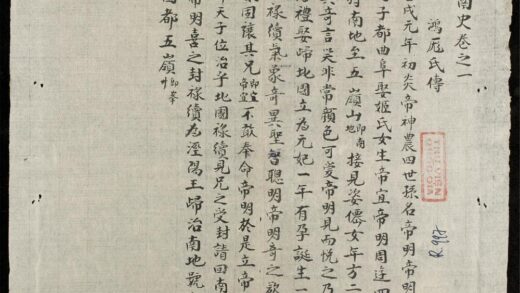 南史卷之一
鴻厖氏傳
戌元年初炎帝神農四世孫名帝明帝明
子都曲阜娶姬氏女生帝宜帝明周逹四
狩南地至五嶺山即南地接見婺僊女年方二
其言笑非常顏色可愛帝明見而悅之乃
禮娶歸北國立為元妃一年有孕誕生一
祿續氣象奇異聖智聰明帝明奇之欲
固讓其兄即帝宜不敢奉命帝明於是立帝
天子位治乎北國祿續見兄之受封請回南
帝明喜之封祿續為涇陽王歸治南地號
國都五嶺
R.997